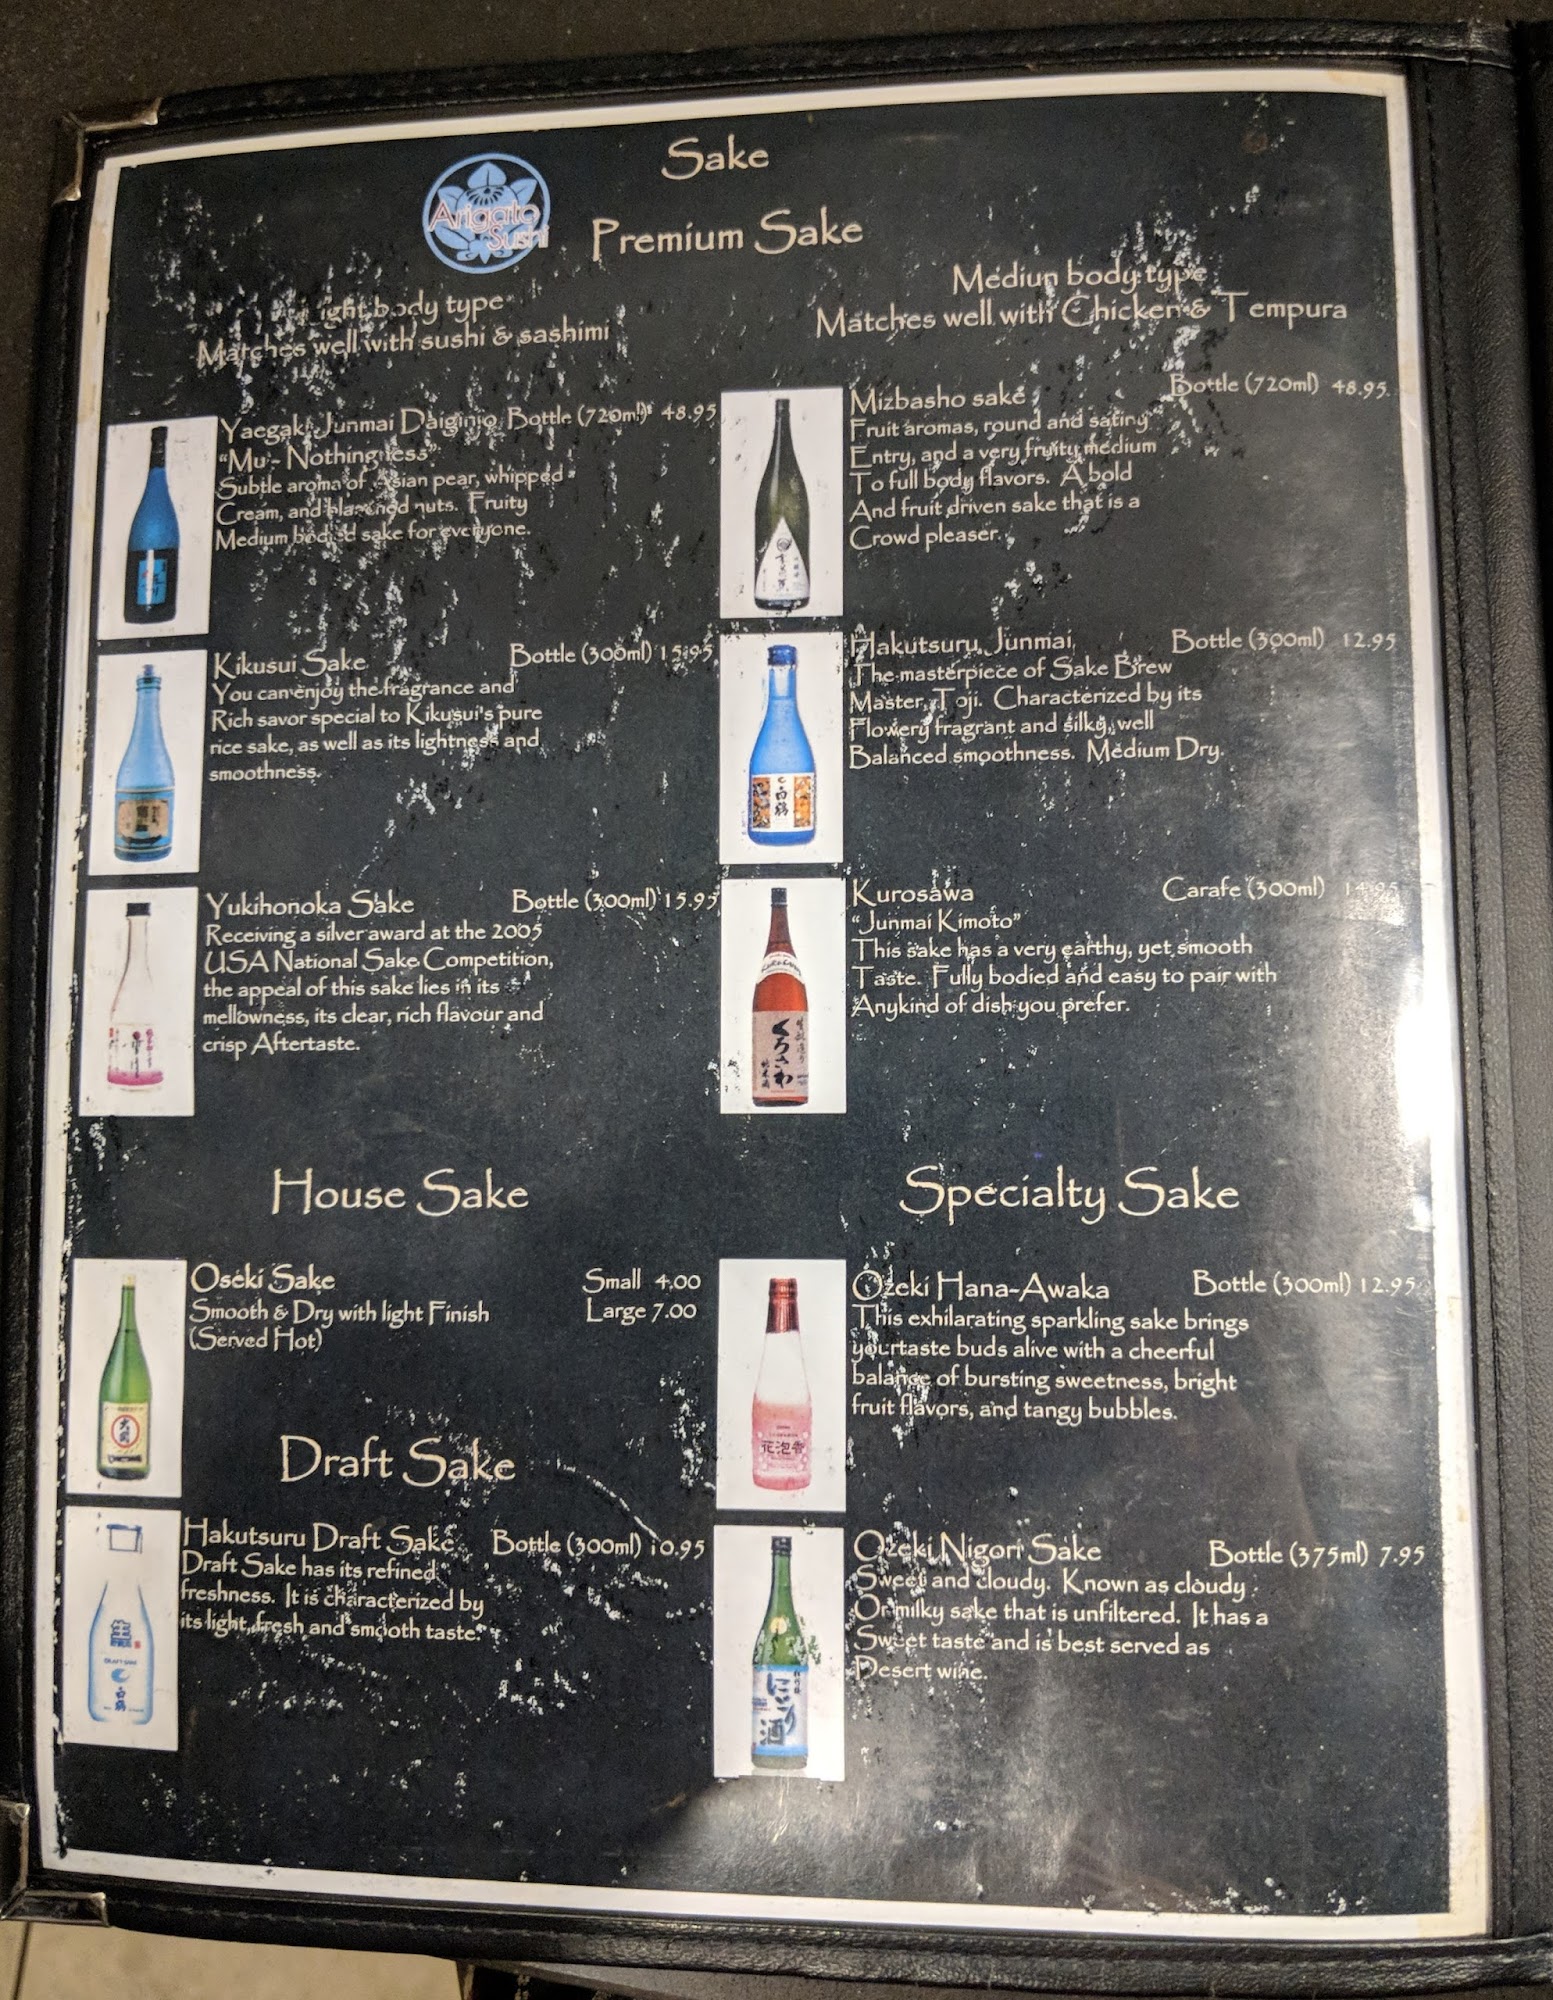 Sake
Arigato
Sushi
Premium Sake
ight body type
Matches well with sushi & sashimi
Yaegaki Junmai Daiginjo Bottle (720ml) 48.95
"Mu - Nothingness"
Subtle aroma of Asian pear, whipped
Cream, and blanched nuts. Fruity
Medium bodied sake for everyone.
Kikusui Sake Bottle (300ml) 15.95
You can enjoy the fragrance and
Rich savor special to Kikusui's pure
rice sake, as well as its lightness and
smoothness.
Yukihonoka Sake Bottle (300ml) 15.95
Receiving a silver award at the 2005
USA National Sake Competition,
the appeal of this sake lies in its
mellowness, its clear, rich flavour and
crisp Aftertaste.
Mediun body type
Matches well with Chicken & Tempura
Mizbasho sake Bottle (720ml) 48.95
Fruit aromas, round and satiny
Entry, and a very fruity medium
To full body flavors. A bold
And fruit driven sake that is a
Crowd pleaser.
Hakutsuru Junmai Bottle (300ml) 12.95
The masterpiece of Sake Brew
Master, Toji. Characterized by its
Flowery fragrant and silky, well
Balanced smoothness. Medium Dry.
白鶴
Kurosawa Carafe (300ml) 14.95
"Junmai Kimoto"
This sake has a very earthy, yet smooth
Taste. Fully bodied and easy to pair with
Anykind of dish you prefer.
くろさわ
純米酒
House Sake
Oseki Sake Small 4.00
Smooth & Dry with light Finish Large 7.00
(Served Hot)
Draft Sake
Hakutsuru Draft Sake Bottle (300ml) 10.95
Draft Sake has its refined
freshness. It is characterized by
its light, fresh and smooth taste.
生
DRAFT SAKE
白鶴
Specialty Sake
Ozeki Hana-Awaka Bottle (300ml) 12.95
This exhilarating sparkling sake brings
your taste buds alive with a cheerful
balance of bursting sweetness, bright
fruit flavors, and tangy bubbles.
花泡香
Ozeki Nigori Sake Bottle (375ml) 7.95
Sweet and cloudy. Known as cloudy
Or milky sake that is unfiltered. It has a
Sweet taste and is best served as
Desert wine.
にごり
酒